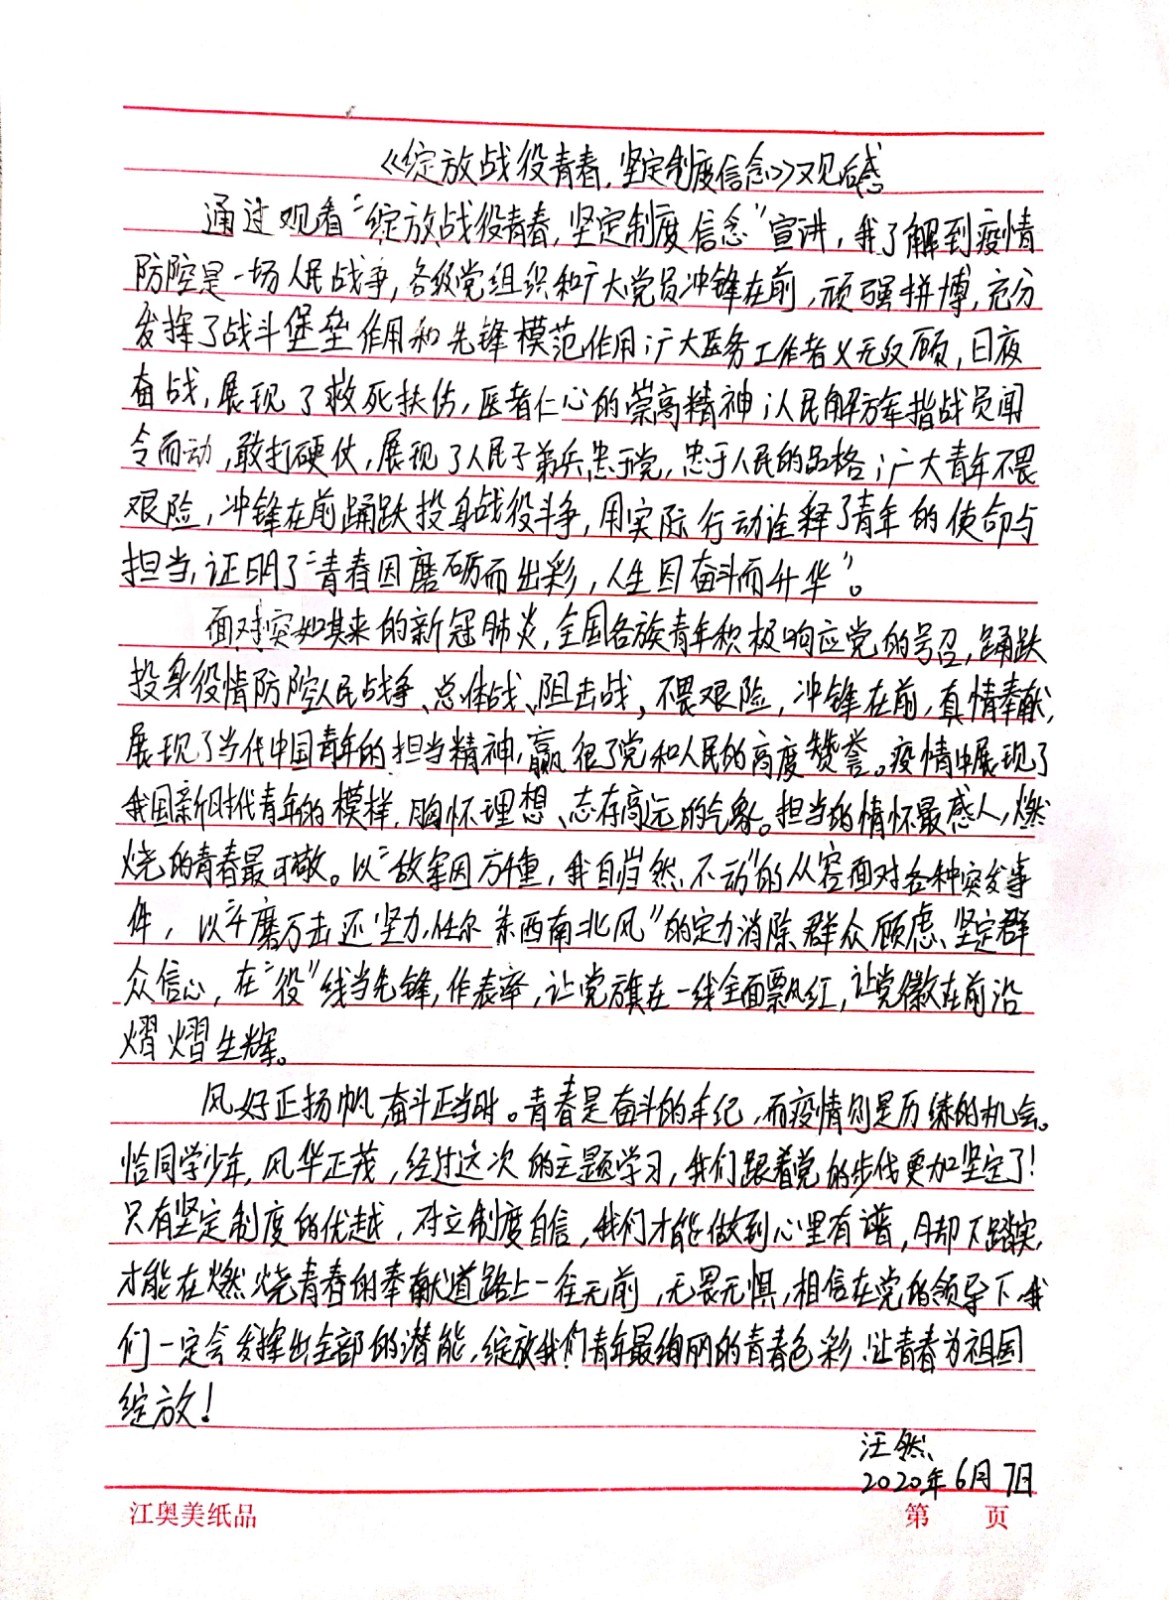 《绽放战役青春,坚定制度信念》观后感
通过观看“绽放战役青春,坚定制度信念”宣讲,我了解到疫情
防控是一场人民战争,各级党组织和广大党员冲锋在前,顽强拼搏,充分
发挥了战斗堡垒作用和先锋模范作用;广大医务工作者义无反顾,日夜
奋战,展现了救死扶伤,医者仁心的崇高精神;人民解放军指战员闻
令而动,敢打硬仗,展现了人民子弟兵忠于党,忠于人民的品格;广大青年不畏
艰险,冲锋在前踊跃投身战役斗争,用实际行动诠释了青年的使命与
担当,证明了“青春因磨砺而出彩,人生因奋斗而升华”。
面对突如其来的新冠肺炎,全国各族青年积极响应党的号召,踊跃
投身役情防控人民战争、总体战、阻击战,不畏艰险,冲锋在前,真情奉献,
展现了当代中国青年的担当精神,赢很了党和人民的高度赞誉。疫情中展现了
我国新时代青年的模样,胸怀理想、志存高远的气象。担当的情怀最感人,燃
烧的青春最可敬。以“敌军围万千重,我自岿然不动”的从容面对各种突发事
件,以“千磨万击还坚劲,任尔东西南北风”的定力消除群众顾虑、坚定群
众信心,在“役”线当先锋,作表率,让党旗在一线全面飘红,让党徽在前沿
熠熠生辉。
风好正扬帆,奋斗正当时。青春是奋斗的年纪,而疫情则是历练的机会。
恰同学少年,风华正茂,经过这次的主题学习,我们跟着党的步伐更加坚定了!
只有坚定制度的优越,对立制度自信,我们才能做到心里有谱,脚下踏实,
才能在燃烧青春的奉献道路上一往无前,无畏无惧,相信在党的领导下,我
们一定会发挥出全部的潜能,绽放我们青年最绚丽的青春色彩,让青春为祖国
绽放!
汪然
2020年6月7日
江奥美纸品 第 页